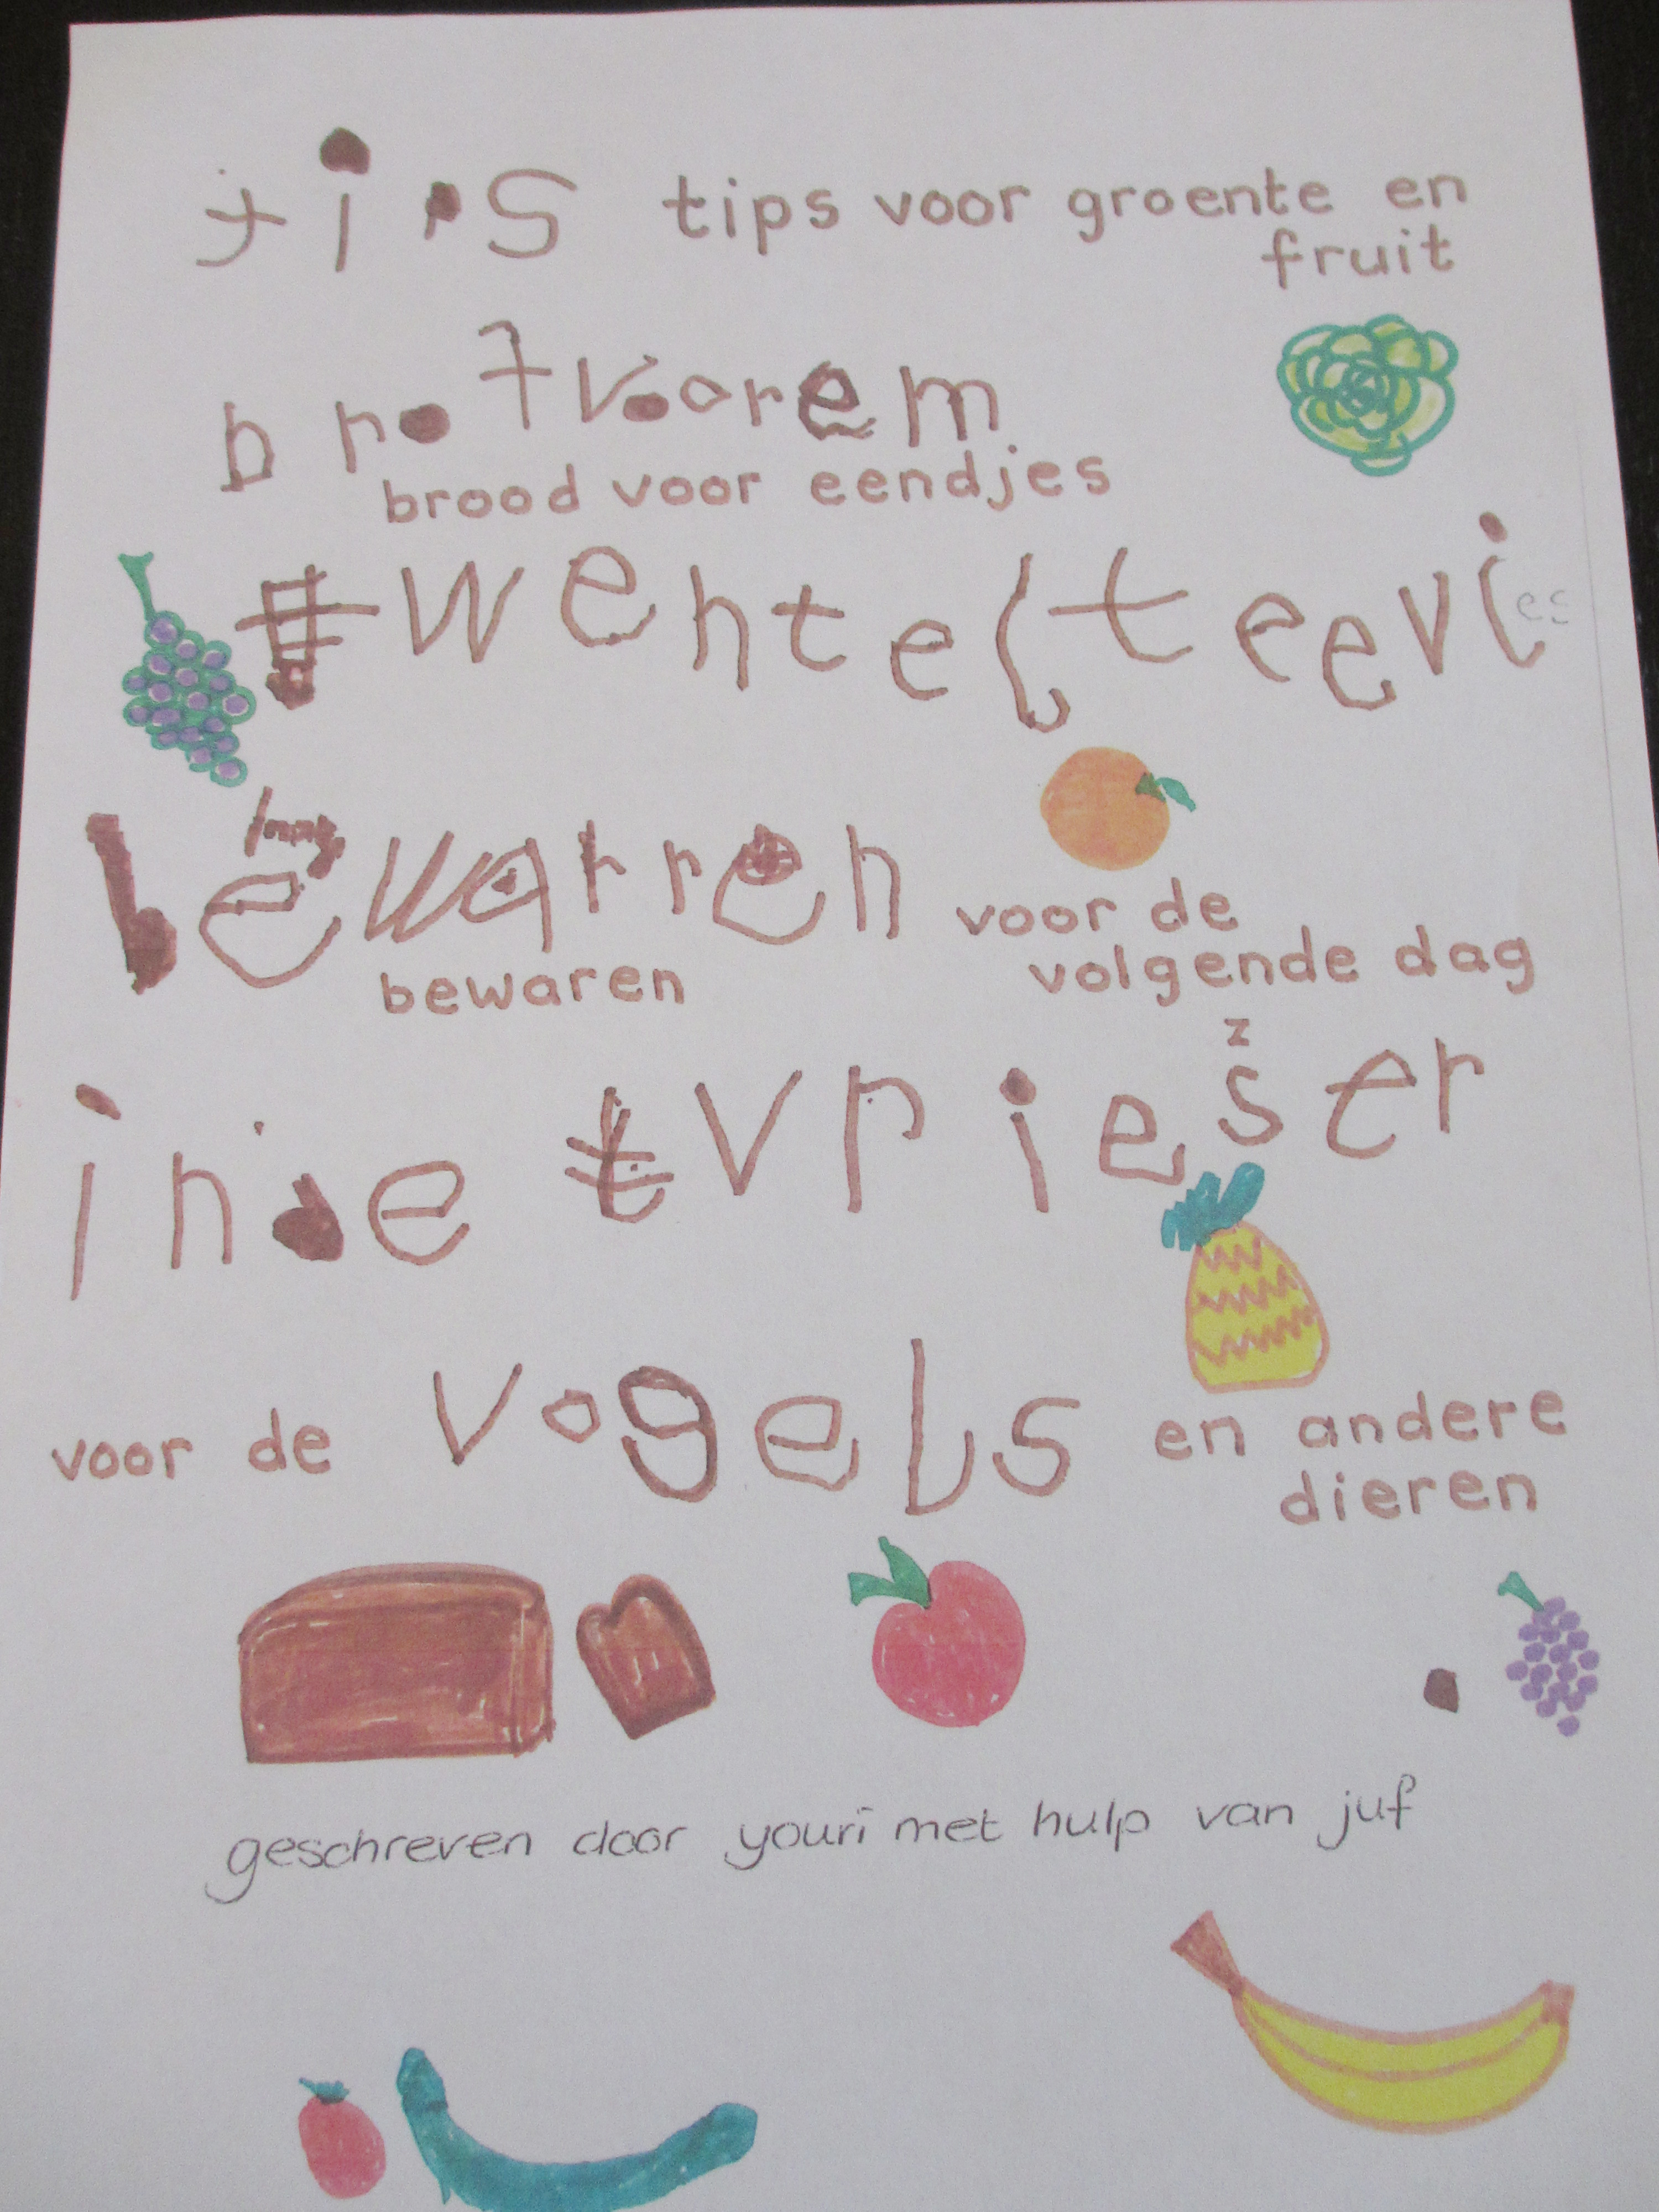 tips tips voor groente en
fruit
brot voor em
brood voor eendjes
wentelteevies
bewarren voor de
bewaren volgende dag
z
in de vrieser
voor de vogels en andere
dieren
geschreven door youri met hulp van juf